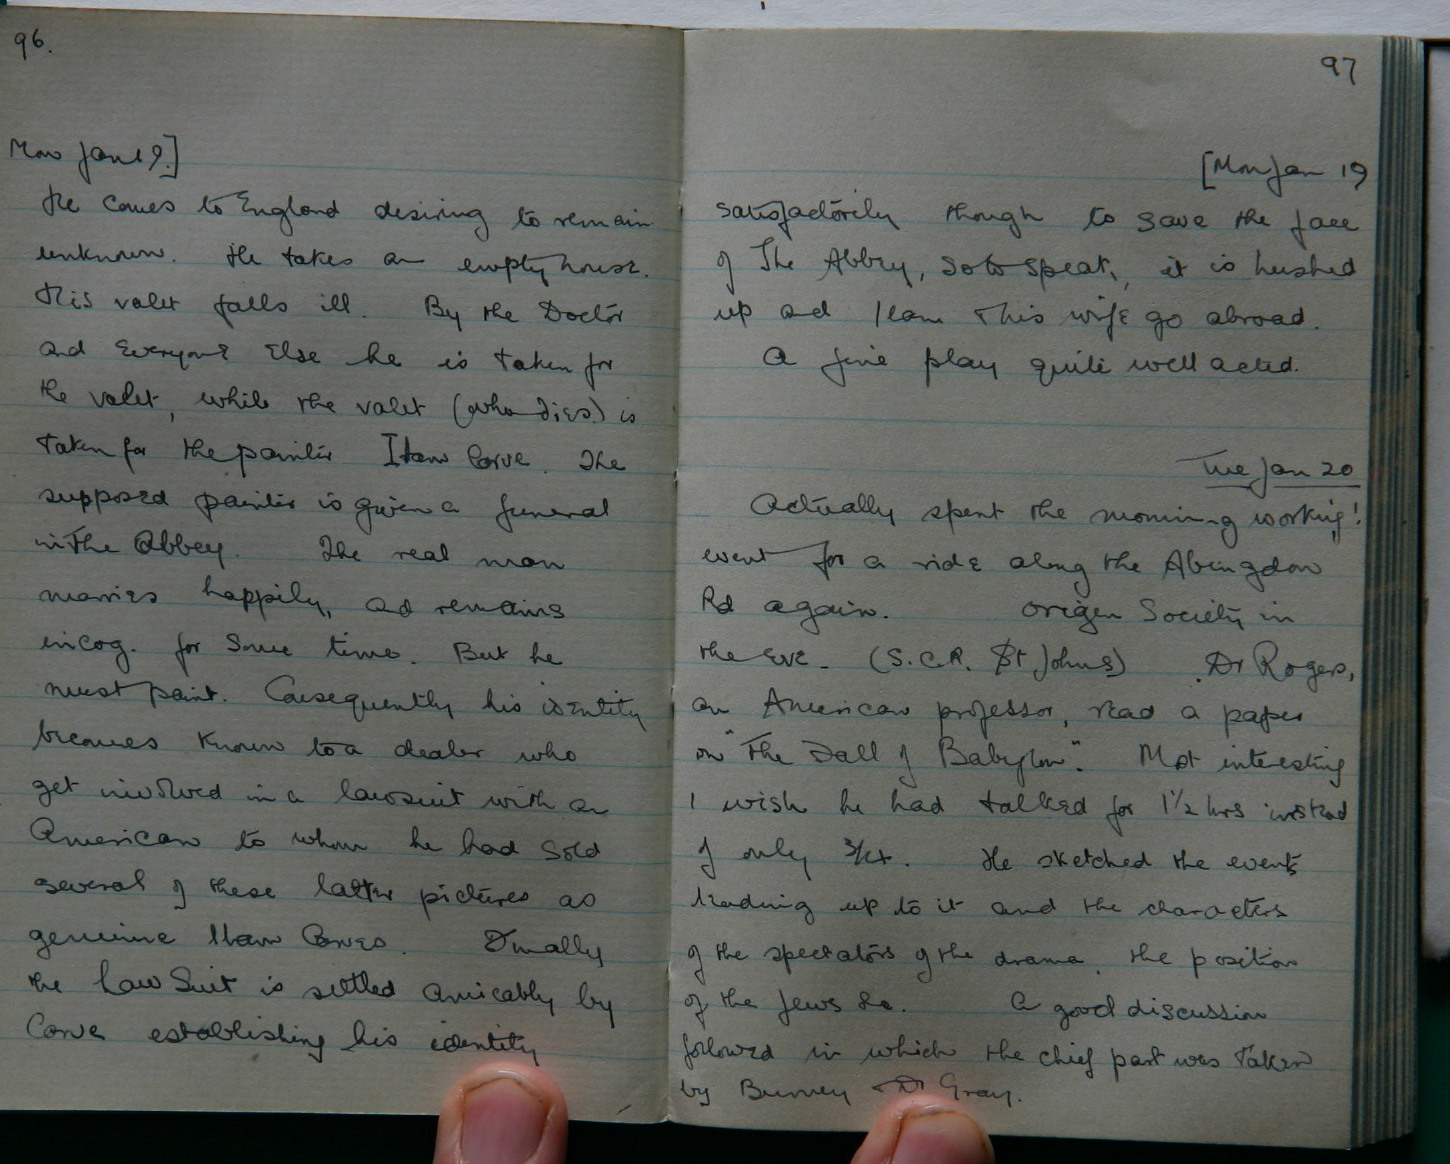 96.
Mon Jan 19.]
He comes to England desiring to remain
unknown. He takes an empty house.
His valet falls ill. By the Doctor
and everyone else he is taken for
the valet, while the valet (who dies) is
taken for the painter Ilam Carve. The
supposed painter is given a funeral
in The Abbey. The real man
marries happily, and remains
incog. for some time. But he
must paint. Consequently his identity
becomes known to a dealer who
get involved in a lawsuit with an
American to whom he had sold
several of these latter pictures as
genuine Ilam Carves. Finally
the Law Suit is settled amicably by
Carve establishing his identity
97
[Mon Jan 19
satisfactorily though to save the face
of The Abbey, so to speak, it is hushed
up and Ilam & his wife go abroad.
A fine play quite well acted.
Tue Jan 20
Actually spent the morning working!
went for a ride along the Abingdon
Rd again. Origen Society in
the Eve. (S.C.R. St Johns) Dr Rogers,
an American professor, read a paper
on "The Fall of Babylon". Most interesting
I wish he had talked for 1½ hrs instead
of only ¾. He sketched the events
leading up to it and the characters
of the spectators of the drama, the position
of the Jews &c. A good discussion
followed in which the chief part was taken
by Burney & Dr Gray.